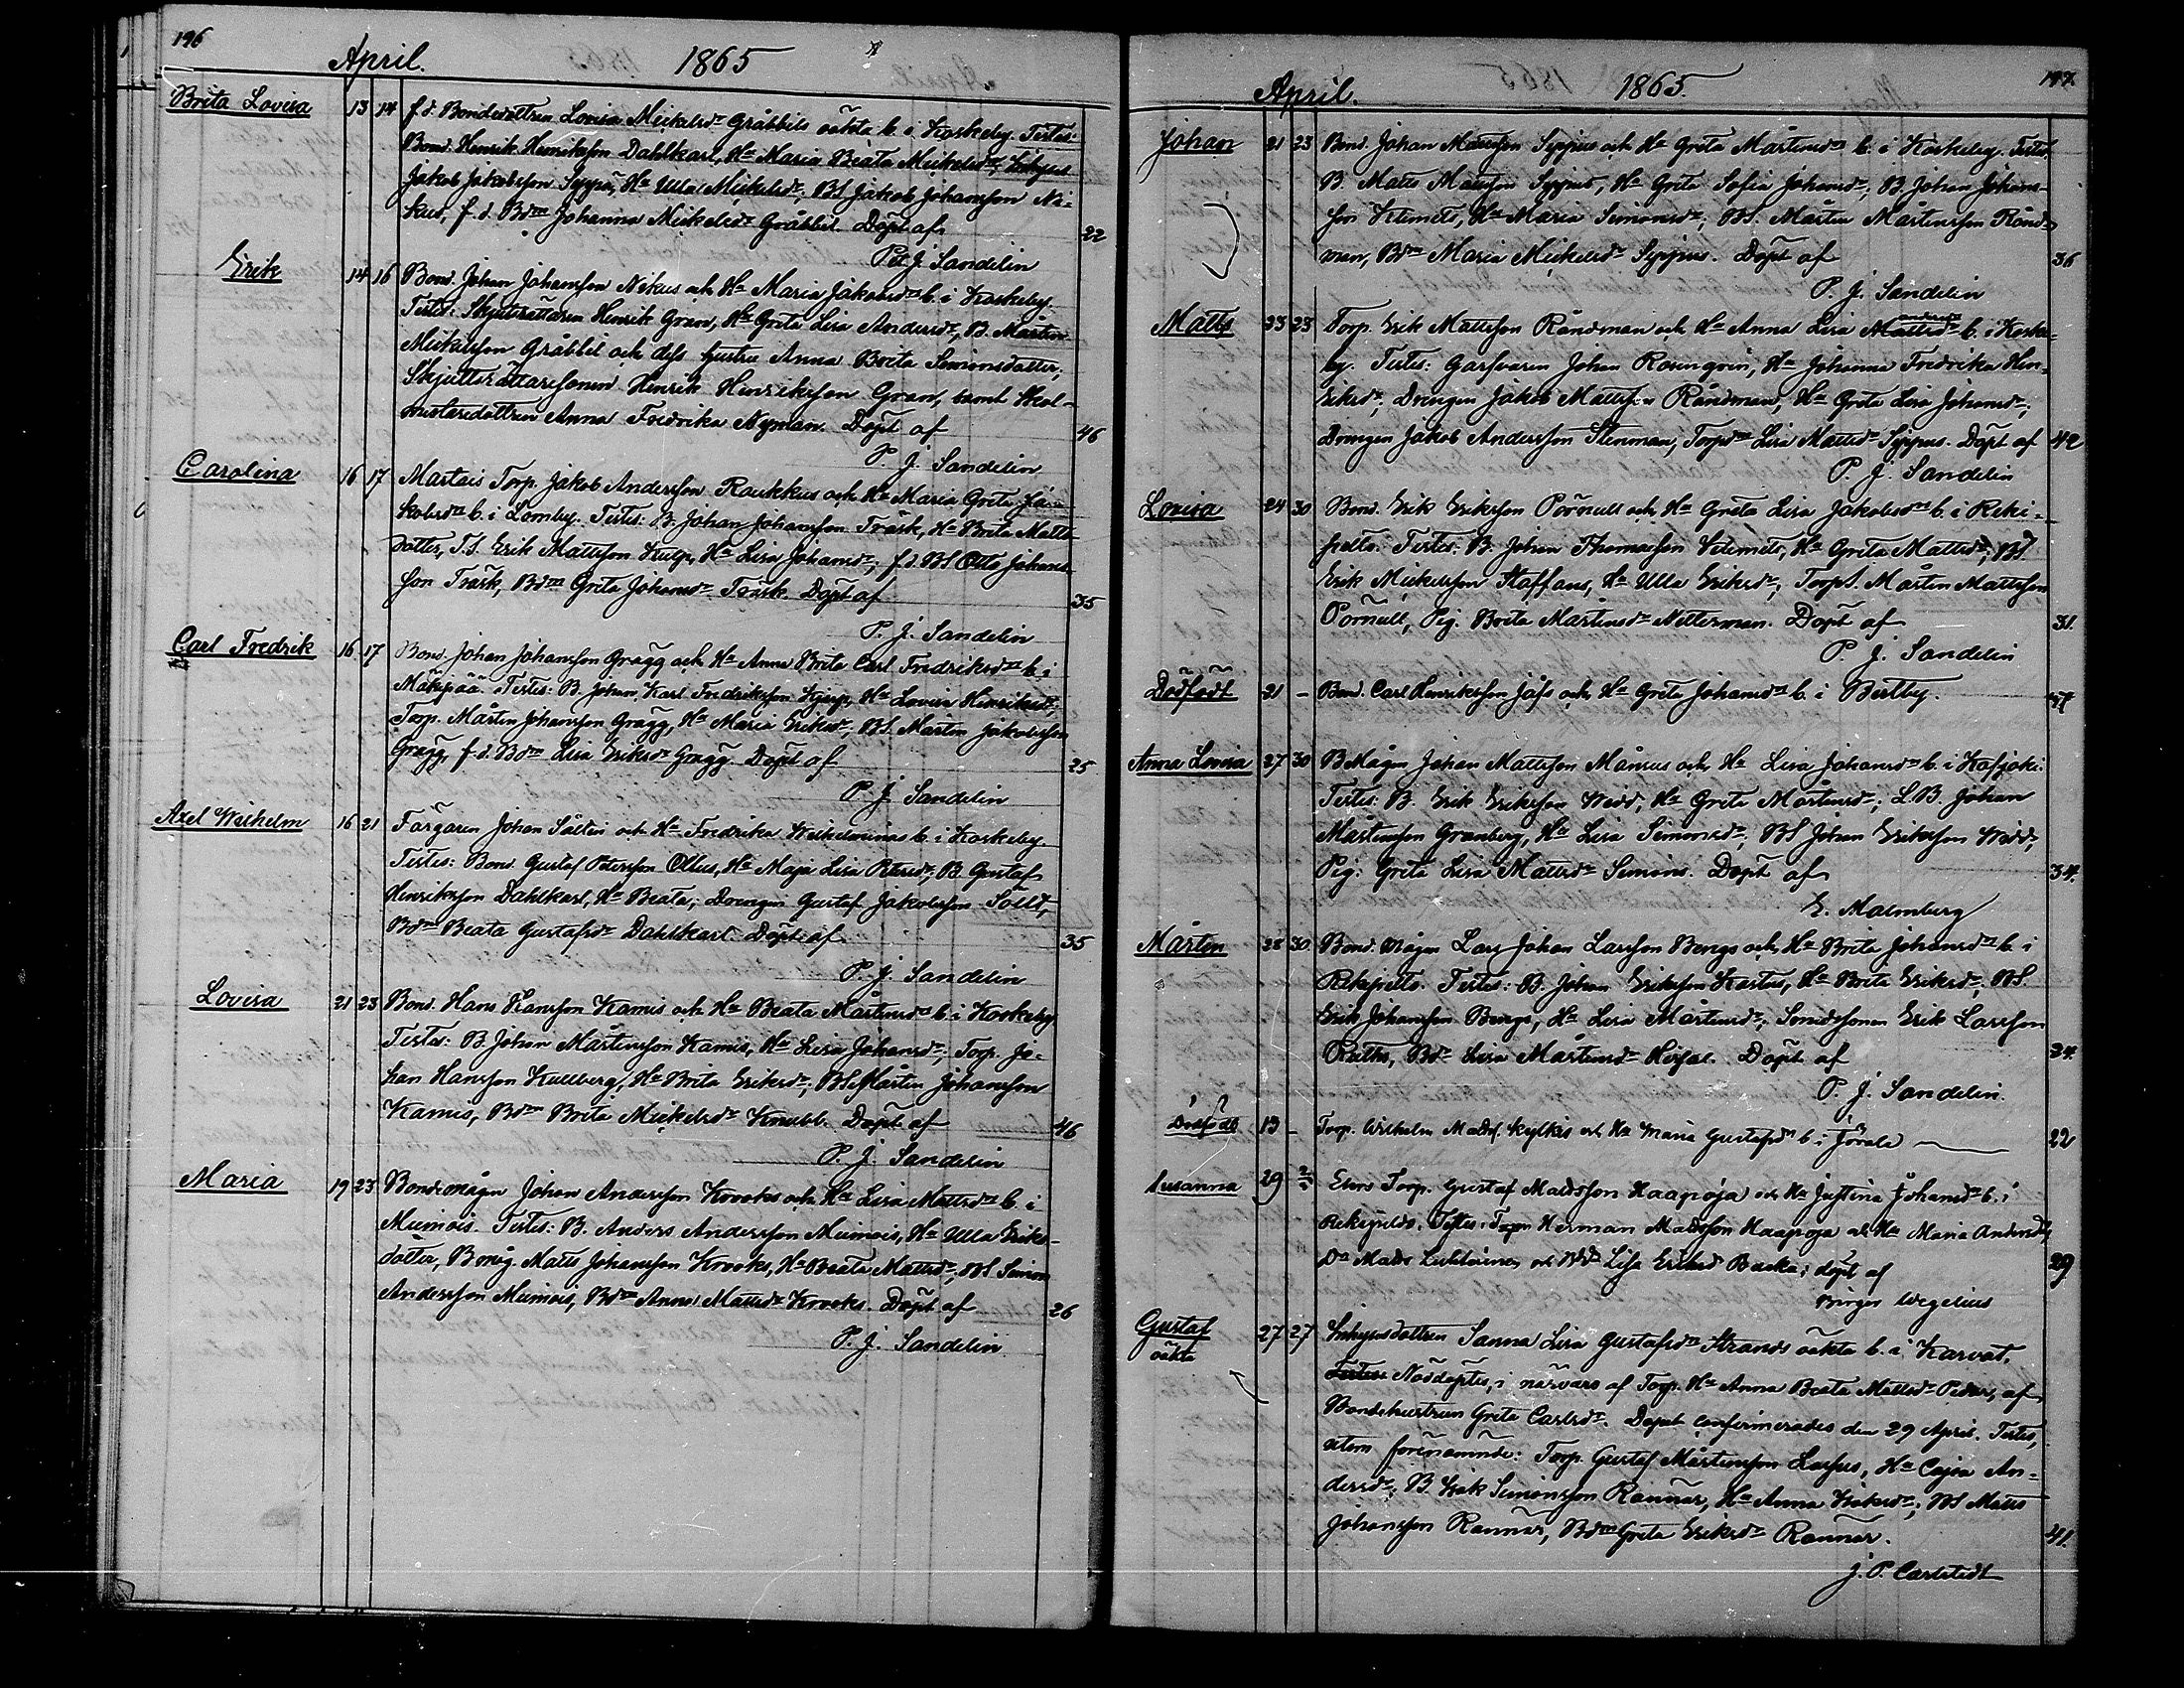 196
April. 1865
Brita Lovisa 13 14 f.d. Bondedottren Lovisa Mickelsdr Gråbbils oäkta b. i Koskeby. Testes:
Bond. Henrik Henriksson Dahlkarl, Ha Maria Beata Mickelsdr; Inhyses
Jakob Jakobsson Syppo, Ha Ulla Mickelsdr; BS Jakob Johansson Ni-
kus, f.d. Bdtrn Johanna Mickelsdr Gråbbil. Döpt af 22
Pet. J. Sandelin
Erik 14 16 Bond. Johan Johansson Nikus och Ha Maria Jakobsdr b. i Koskeby.
Testes: Skjutsrättaren Henrik Gran, Ha Greta Lisa Andersdr, B. Mårten
Mickelsson Gråbbil och dess hustru Anna Brita Simonsdotter;
Skjutsrättaresonen Henrik Henriksson Gran, samt Skol-
mästaredottren Anna Fredrika Nyman. Döpt af 46
P. J. Sandelin
Carolina 16 17 Martais Torp. Jakob Andersson Raukkus och Ha Maria Greta Ja-
kobsdr b. i Lomby. Testes: B. Johan Johansson Träsk, Ha Brita Matts-
dotter, T.S. Erik Mattsson Kulp, Ha Lisa Johansdr; f.d. BS Otto Johans-
son Träsk, Bdtrn Greta Johansdr Träsk. Döpt af 35
P. J. Sandelin
Carl Fredrik 16 17 Bond. Johan Johansson Grägg och Ha Anna Brita Carl Fredriksdr b. i
Mäkipää. Testes: B. Johan Karl Fredriksson Kjerp, Ha Lovisa Henriksdr;
Torp. Mårten Johansson Grägg, Ha Maria Eriksdr; BS. Mårten Jakobsson
Grägg, f.d. Bdtrn Lisa Eriksdr Grägg. Döpt af 25
P. J. Sandelin
Axel Wilhelm 16 21 Färgaren Johan Sältin och Ha Fredrika Wilhelmina b. i Koskeby.
Testes: Bond. Gustaf Petersson Ollus, Ha Maja Lisa Petersdr; B. Gustaf
Henriksson Dahlkarl, Ha Beata; Drengen Gustaf Jakobsson Tolld,
Bdtrn Beata Gustafsdr Dahlkarl. Döpt af 35
P. J. Sandelin
Lovisa 21 23 Bond. Hans Hansson Kamis och Ha Beata Mårtensdr b. i Koskeby
Testes: B. Johan Mårtensson Kamis, Ha Lisa Johansdr; Torp. Jo-
han Hansson Kullberg, Ha Brita Eriksdr; BS Mårten Johansson
Kamis, Bdtrn Brita Mickelsdr Knubb. Döpt af 46
P. J. Sandelin
Maria 19 23 Bondemågen Johan Andersson Krooks och Ha Lisa Mattsdr b. i
Miemois. Testes: B. Anders Andersson Miemois, Ha Ulla Eriks-
dotter, Bmåg. Matts Johansson Krooks, Ha Beata Mattsdr; BS Simon
Andersson Miemois, Bdtrn Anna Mattsdr Krooks. Döpt af 26
P. J. Sandelin
197.
April. 1865.
Johan 21 23 Bond. Johan Mattsson Syppus och Ha Greta Mårtensdr b. i Koskeby. Testes:
B. Matts Mattsson Syppus, Ha Greta Sofia Johansdr; B. Johan Johans-
son Klemets, Ha Maria Simonsdr; BS. Mårten Mårtensson Rånd-
man, Bdtrn Maria Mickelsdr Syppus. Döpt af 36
P. J. Sandelin
Matts 23 23 Torp. Erik Mattsson Råndman och Ha Anna Lisa Mattsdr b. i Koske-
by. Testes: Garfvaren Johan Rosenqvist, Ha Johanna Fredrika Hen-
riksdr; Drengen Jakob Mattsson Råndman, Ha Greta Lisa Johansdr;
Drengen Jakob Andersson Stenman, Torpdtrn Lisa Mattsdr Syppus. Döpt af 42
P. J. Sandelin
Lovisa 24 30 Bond. Erik Eriksson Pörnull och Ha Greta Lisa Jakobsdr b. i Reki-
pelto. Testes: B. Johan Thomasson Klemets, Ha Greta Mattsdr; BS
Erik Mickelsson Staffans, Ha Ulla Eriksdr; TorpS. Mårten Mattsson
Pörnull, Pig. Brita Mårtensdr Netterman. Döpt af 31.
P. J. Sandelin
Dödfödt 21 - Bond. Carl Henriksson Jåfs och Ha Greta Johansdr b. i Bertby.
Anna Lovisa 27 30 BMågen Johan Mattsson Månsus och Ha Lisa Johansdr b. i Kasjoki.
Testes: B. Erik Eriksson Wedd, Ha Greta Mårtensdr; L.B. Johan
Mårtensson Granberg, Ha Lisa Simonsdr; BS Johan Eriksson Wedd,
Pig. Greta Lisa Mattsdr Simons. Döpt af 34.
E. Malmberg
Mårten 28 30 Bond. mågen Lars Johan Larsson Bengs och Ha Brita Johansdr b. i
Rekipelto. Testes: B. Johan Eriksson Kastus, Ha Brita Eriksdr; BS.
Erik Johansson Bengs, Ha Lisa Mårtensdr; Smedsonen Erik Larsson
Reiths, Bdr Lisa Mårtensdr Heijal. Döpt af 24.
P. J. Sandelin.
Dödfödt 13 - Torp. Wilhelm Mattss. Kylkis och Ha Maria Gustafsdr b. i Jörala 22
Susanna 29 Torp. Gustaf Mattsson Haapoja och Ha Justina Johansdr b. i
Rekipeldo. Testes: Torpn Herman Mattsson Haapoja och Ha Maria Andersdr
Dn Matts och Lisa Eriksd Backa; döpt af 29
Birger Wegelius
Gustaf oäkta 27 27 Inhysesdottren Sanna Lisa Gustafsdr Strands oäkta b. i Karvat.
Testes: Nöddöptes, i närvaro af Torp. Ha Anna Beata Mattsdr Peder, af
Bondehustrun Greta Carlsdr. Dopet confirmerades den 29 April. Testes,
utom förenämnde: Torp. Gustaf Mårtensson Lassus, Ha Cajsa An-
dersdr; B. Isak Simonsson Rannar, Ha Anna Isaksdr; BS Matts
Johansson Rannar, Bdtrn Greta Eriksdr Rannar. 41.
J. P. Carlstedt